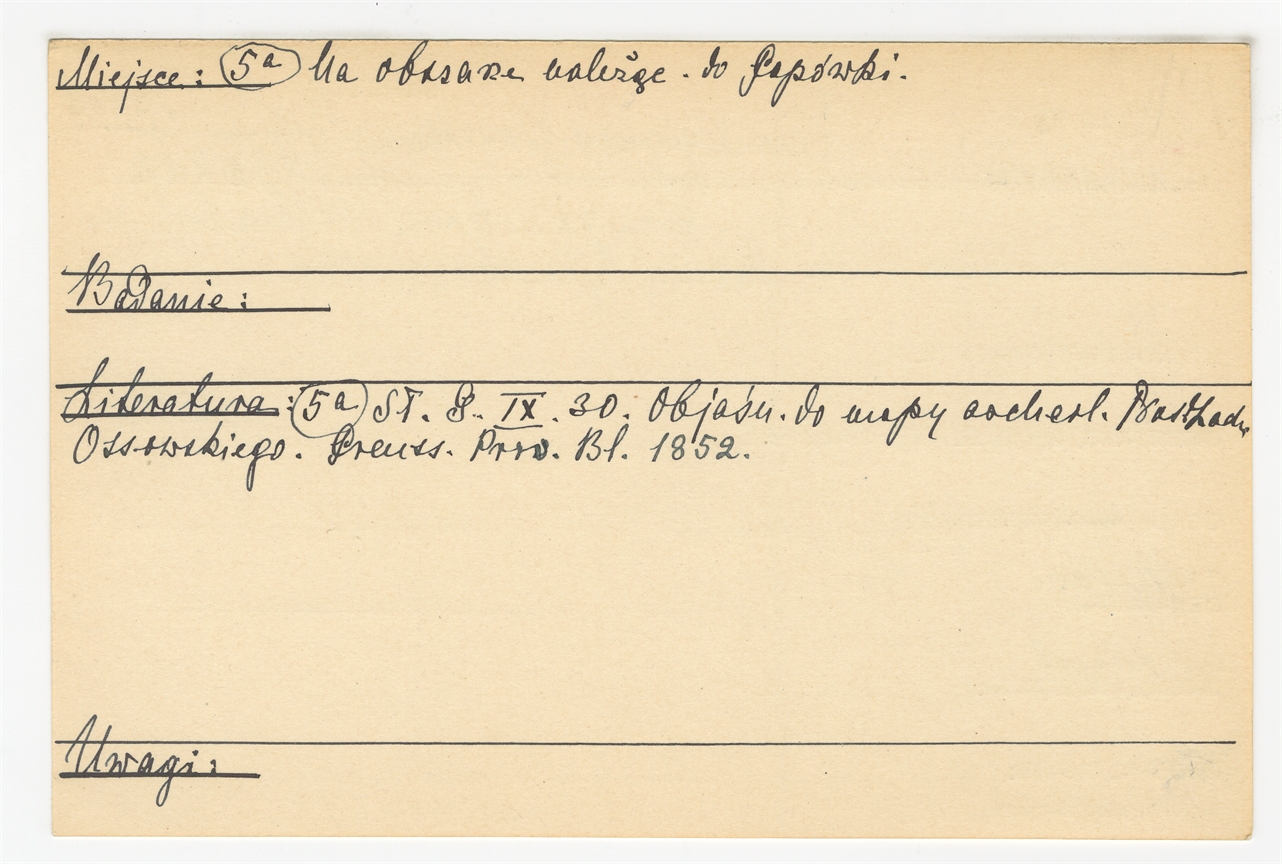 Miejsce: 5a Na obszarze należące. do Papówki.
Badanie:
Literatura: 5a St. G. IX. 30. Objaśn. do mapy archeol.
Ossowskiego. Preuss. Prov. Bl. 1852.
Uwagi: